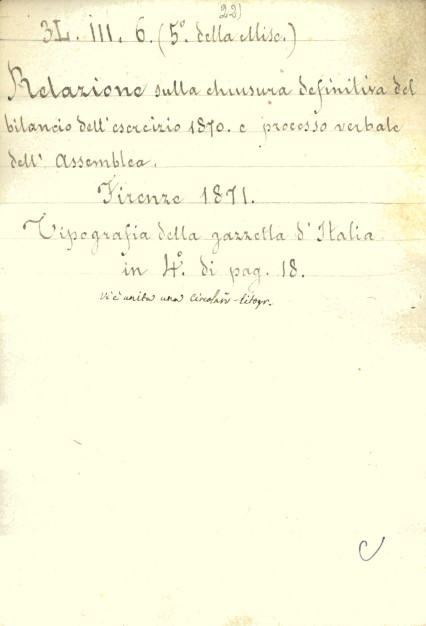 22)
3L. III. 6. (5º. della Misc.)
Relazione sulla chiusura definitiva del
bilancio dell'esercizio 1870. e processo verbale
dell' Assemblea.
Firenze 1871.
Tipografia della gazzetta d'Italia
in 4º. di pag. 18.
Vi è unita una Circolare - litogr.
C